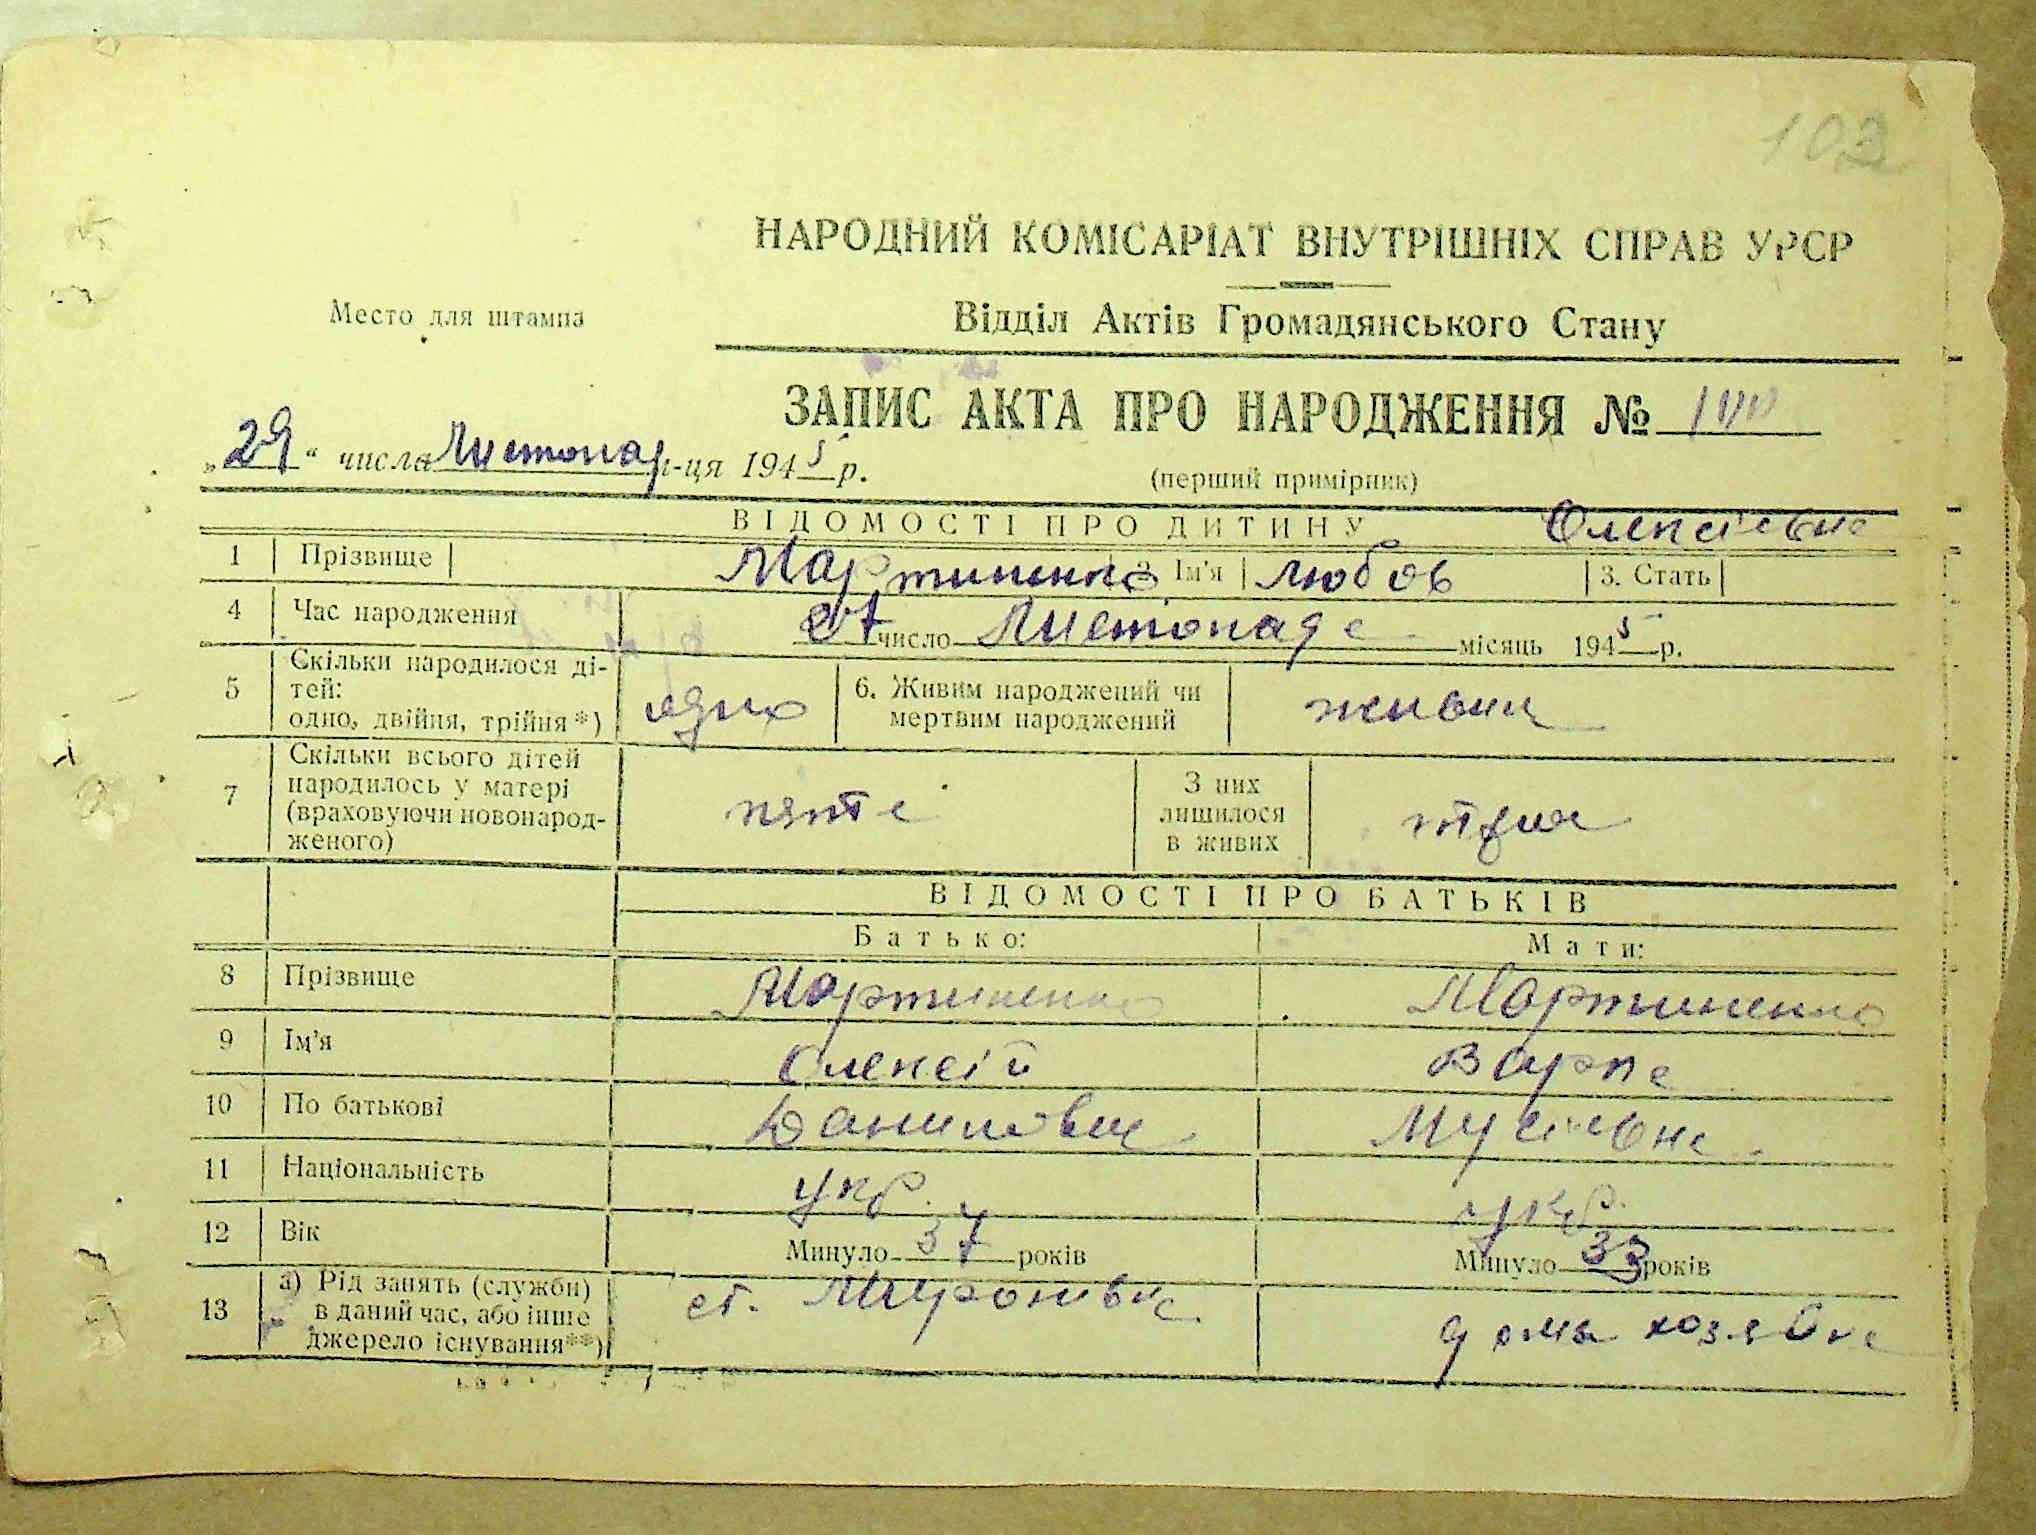 103
НАРОДНИЙ КОМІСАРІАТ ВНУТРІШНІХ СПРАВ УРСР
Место для штампа
Відділ Актів Громадянського Стану
ЗАПИС АКТА ПРО НАРОДЖЕННЯ №
„29“ числа Листопад м-ця 1945 р.
(перший примірник)
ВІДОМОСТІ ПРО ДИТИНУ Олексіевна
1 Прізвище Мартиненко 2. Ім'я Любов 3. Стать
4 Час народження 27 число Листопада місяць 1945 р.
5 Скільки народилося ді-
тей:
одно, двійня, трійня*) 6. Живим народжений чи
мертвим народжений живим
7 Скільки всього дітей
народилось у матері
(враховуючи новонарод-
женого) З них
лишилося
в живих
ВІДОМОСТІ ПРО БАТЬКІВ
Батько: Мати:
8 Прізвище Мартиненко Мартиненко
9 Ім'я Олексій Варка
10 По батькові Данилович Мусіевна
11 Національність укр. укр.
12 Вік Минуло 37 років Минуло 33 років
13 а) Рід занять (служби)
в даний час, або інше
джерело існування**) ст. Миронівка дома хозяйка